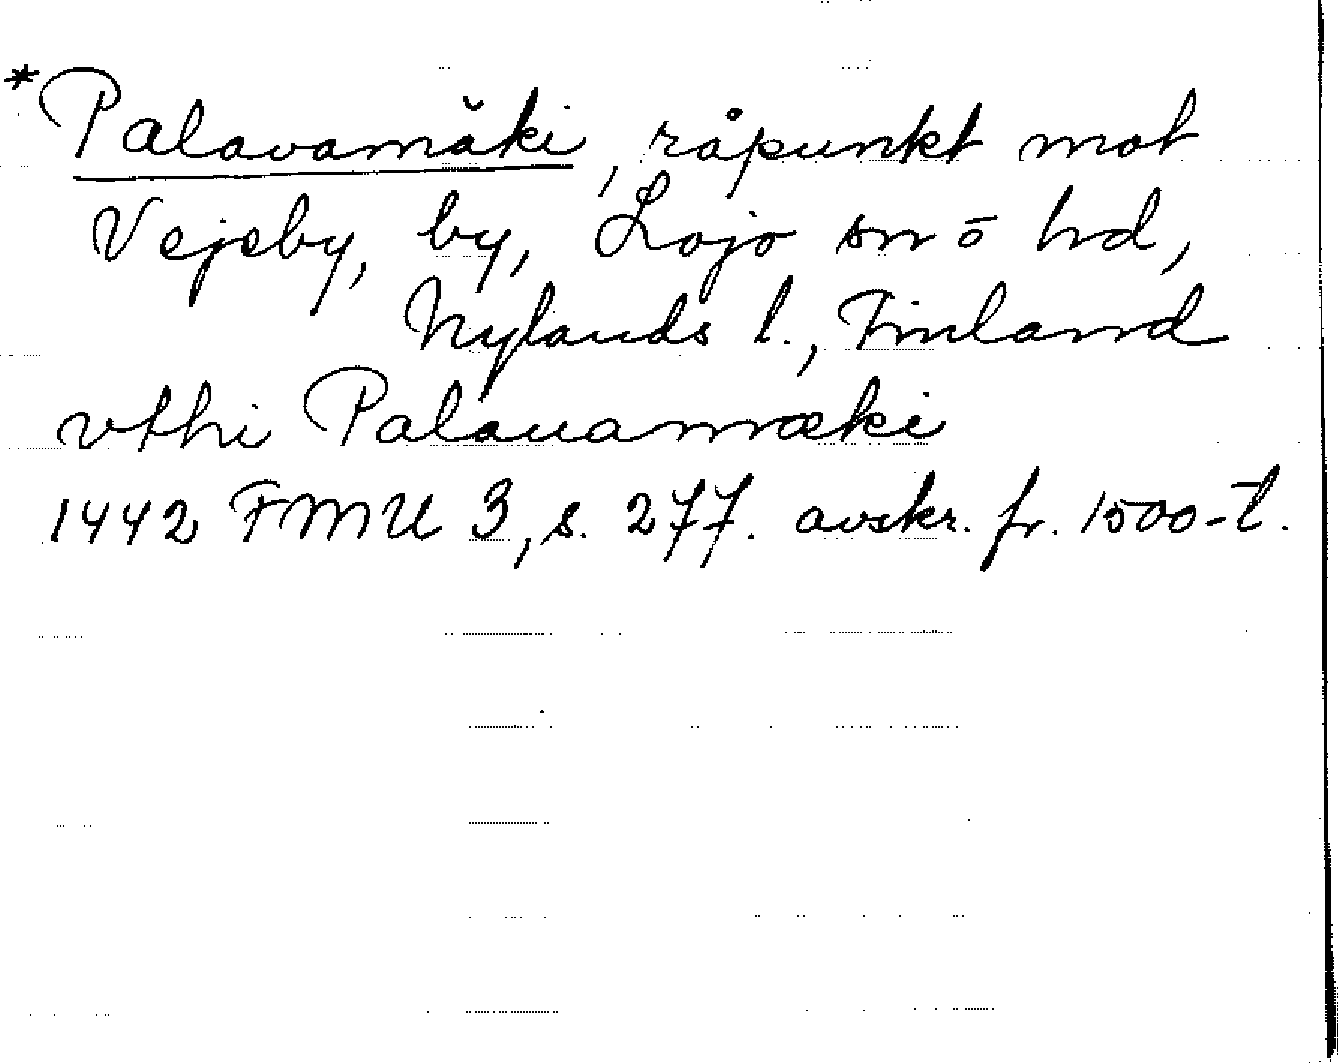 *Palavamäki, råpunkt mot
Vejeby, by, Lojo sn o hd,
Nylands l., Finland
vthi Palauamæki
1442 FMU 3, s. 277. avskr. fr. 1500-t.